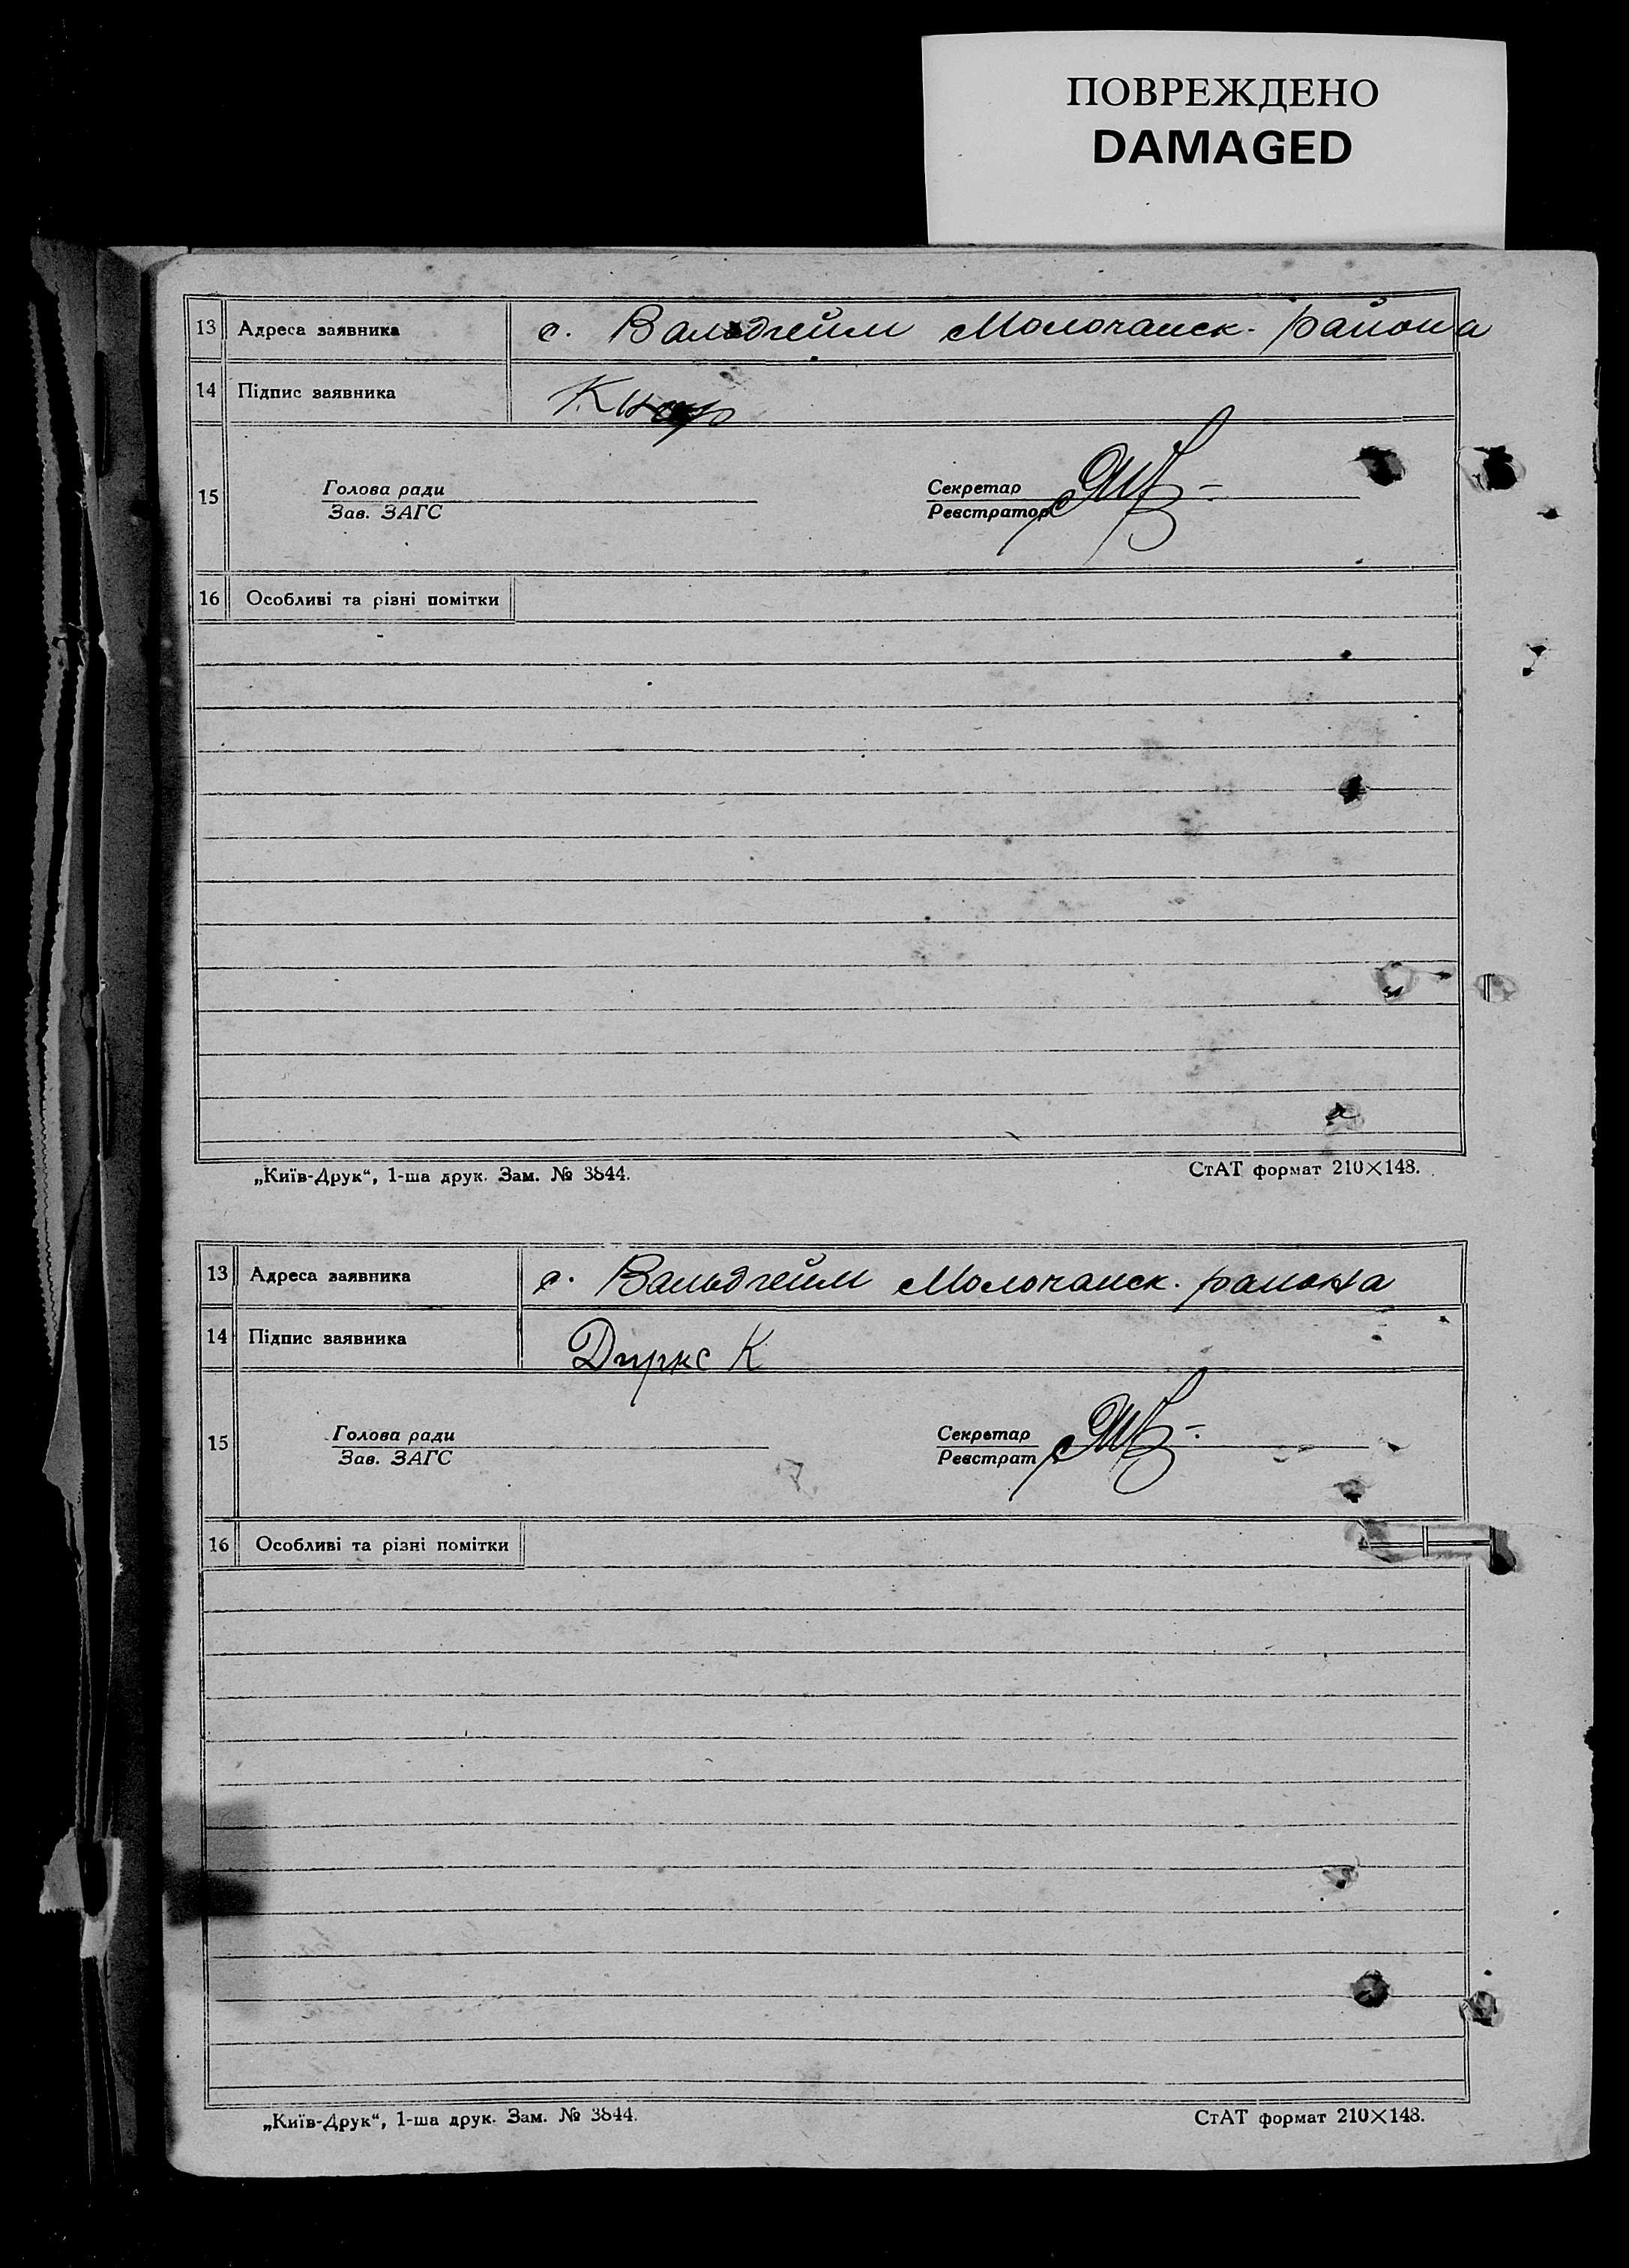 ПОВРЕЖДЕНО
DAMAGED
13 Адреса заявника с. Вальдгейм Молочанск. района
14 Підпис заявника
15 Голова ради Секретар
Зав. ЗАГС Реєстратор
16 Особливі та різні помітки
„Київ-Друк“, 1-ша друк. Зам. № 3844. СтАТ формат 210×148.
13 Адреса заявника с. Вальдгейм Молочанск. района
14 Підпис заявника Диркс К
15 Голова ради Секретар
Зав. ЗАГС Реєстрат
16 Особливі та різні помітки
„Київ-Друк“, 1-ша друк. Зам. № 3844. СтАТ формат 210×148.